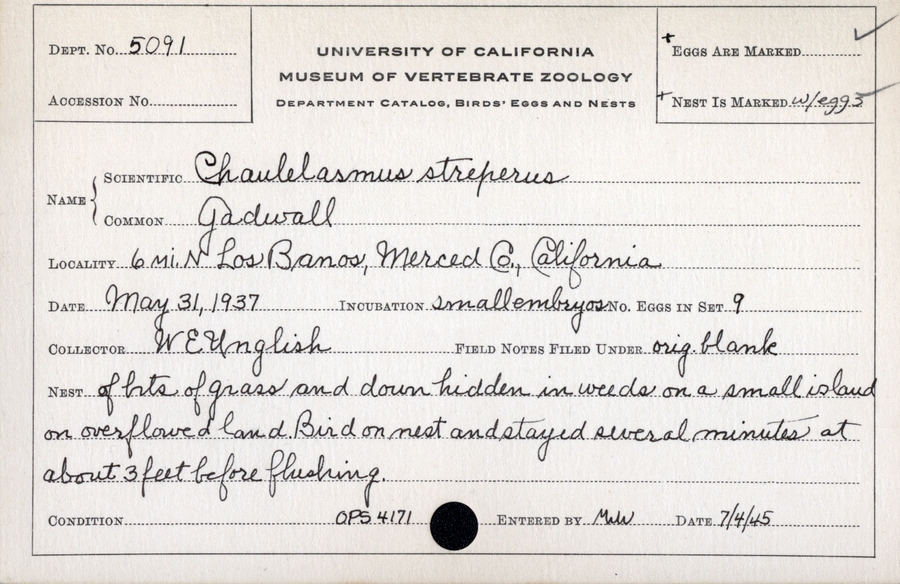 DEPT. No. 5091
UNIVERSITY OF CALIFORNIA
MUSEUM OF VERTEBRATE ZOOLOGY
DEPARTMENT CATALOG, BIRDS' EGGS AND NESTS
+ EGGS ARE MARKED ✓
ACCESSION No.
+ NEST IS MARKED w/eggs ✓
NAME { SCIENTIFIC Chaulelasmus streperus
COMMON Gadwall
LOCALITY 6 mi. N Los Banos, Merced Co., California
DATE May 31, 1937 INCUBATION small embryos No. EGGS IN SET 9
COLLECTOR W E Unglish FIELD NOTES FILED UNDER orig. blank
NEST of bits of grass and down hidden in weeds on a small island
on overflowed land. Bird on nest and stayed several minutes at
about 3 feet before flushing.
CONDITION OPS 4171 ENTERED BY DATE 7/4/45